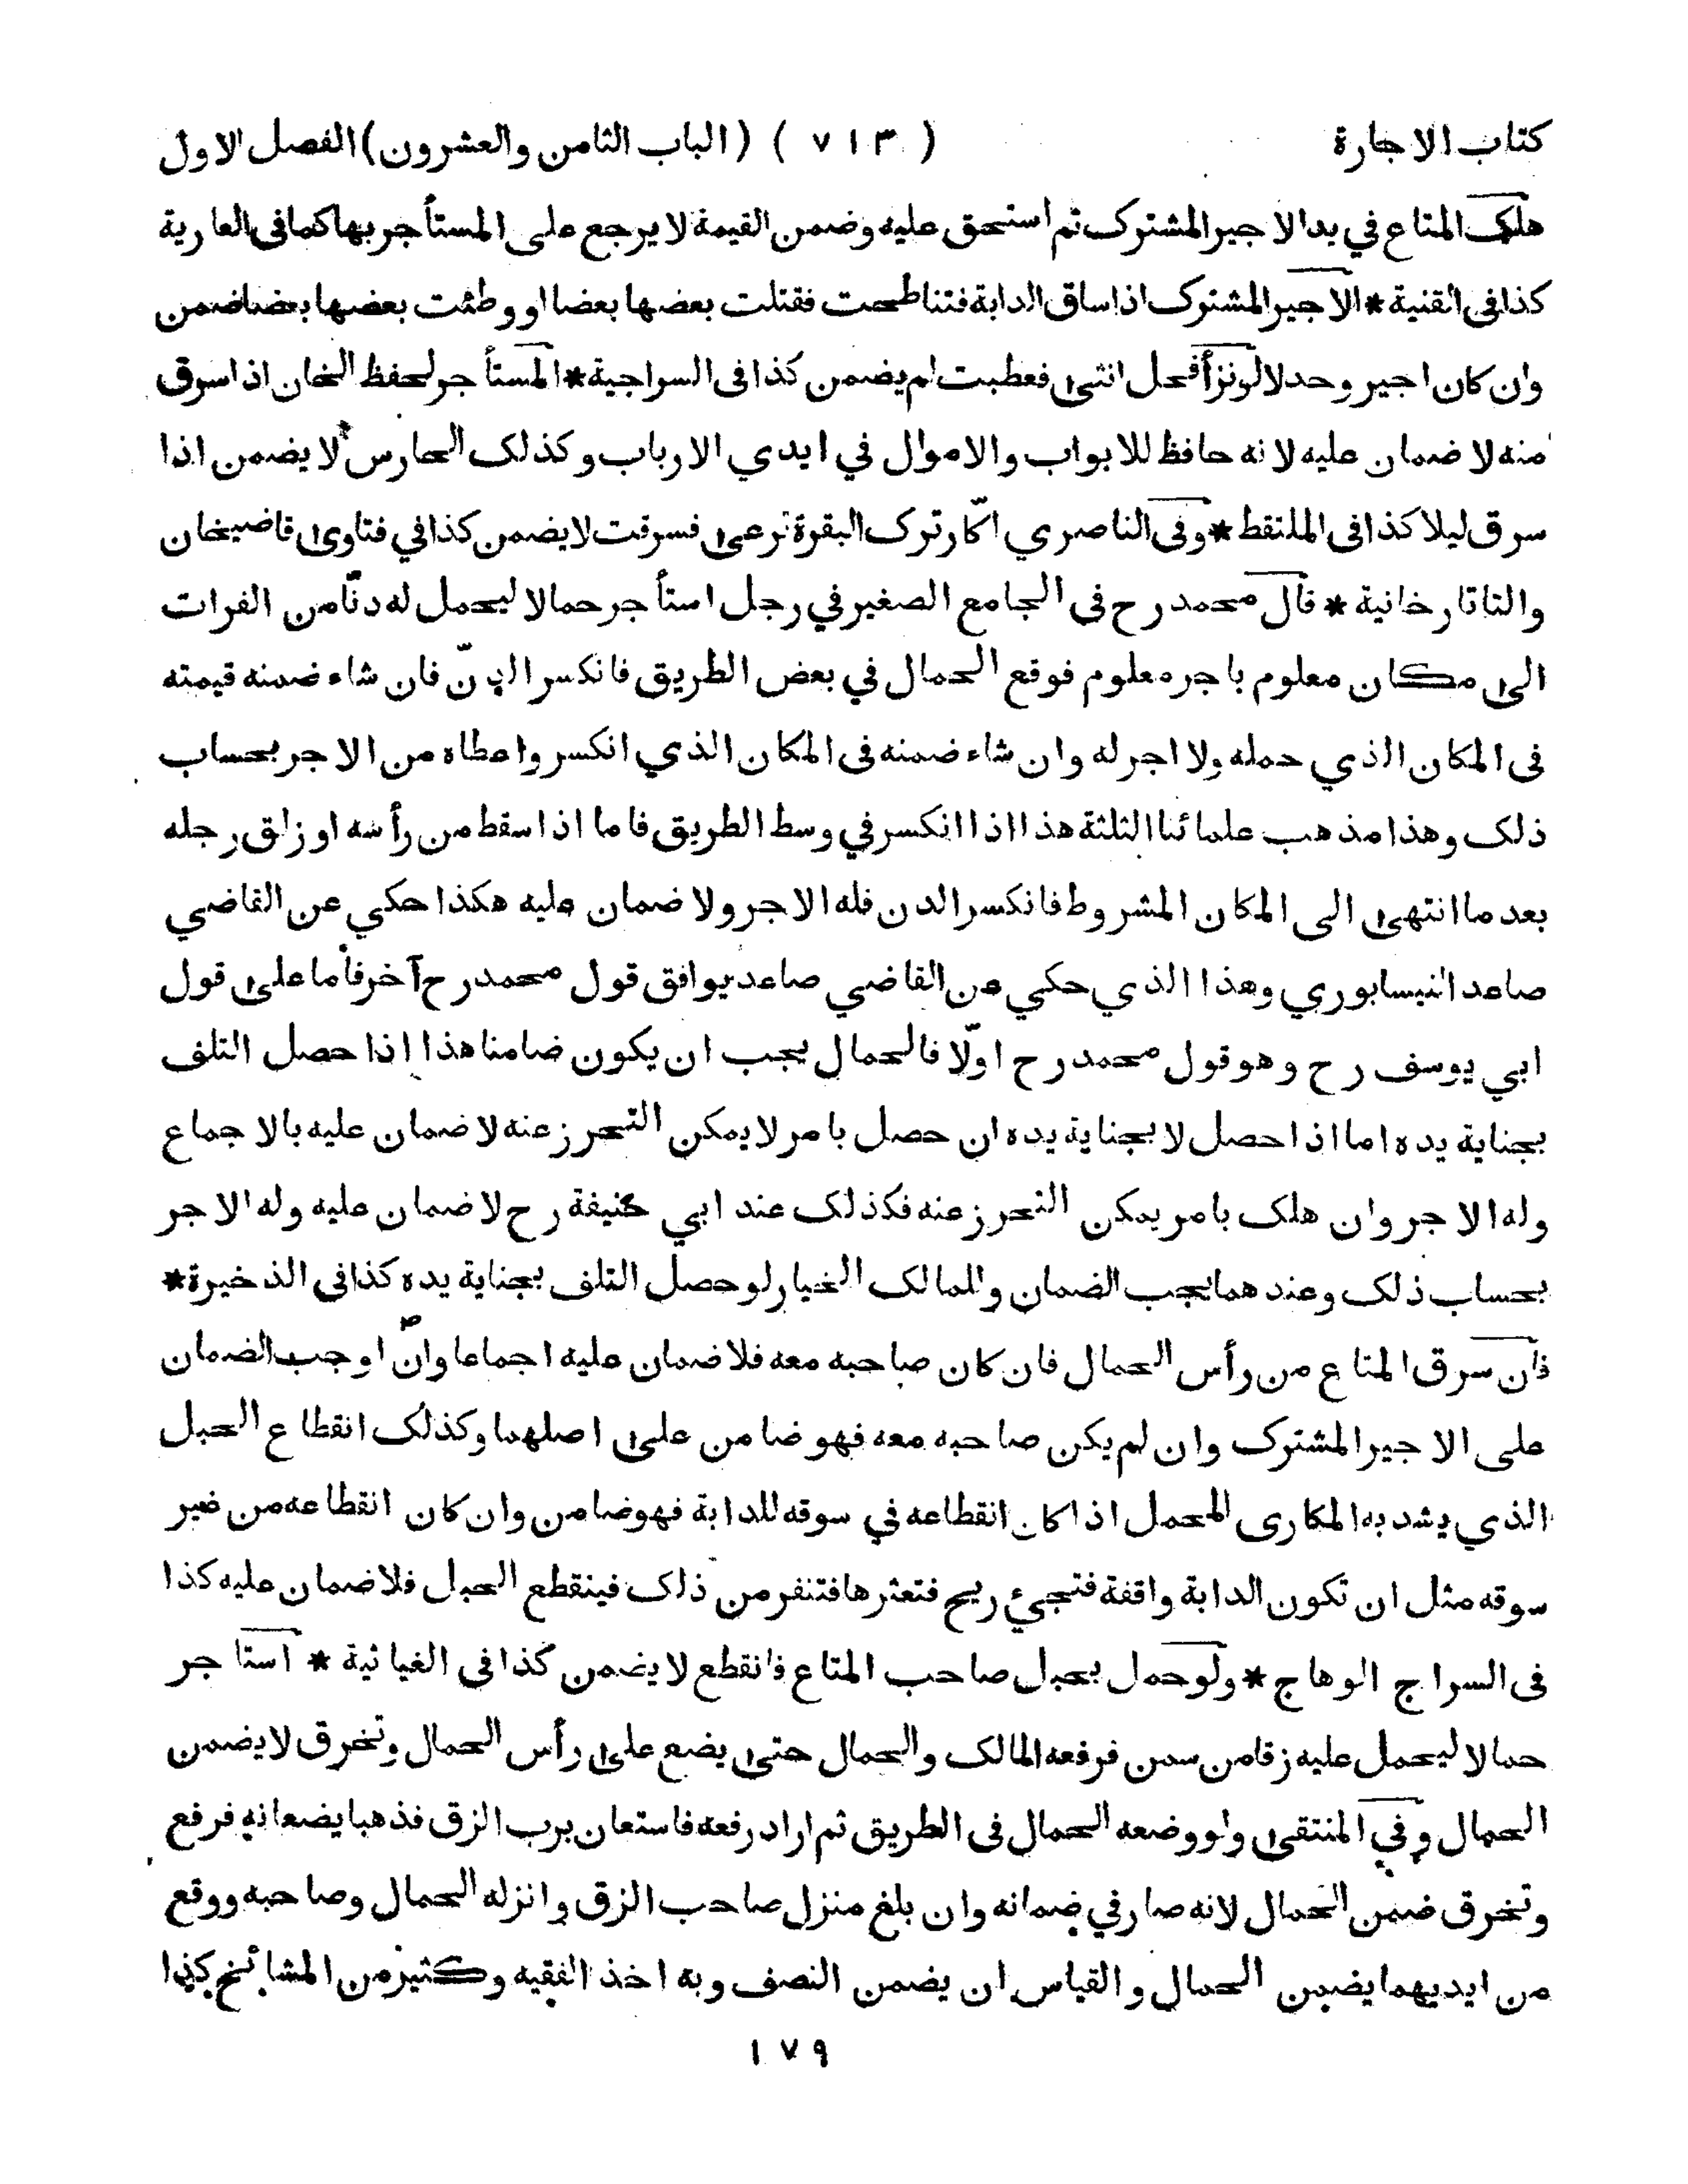 كتاب الاجارة ( ٧١٣ ) (الباب الثامن والعشرون) الفصل الاول
هلك المتاع في يد الاجير المشترك ثم استحق عليه وضمن القيمة لا يرجع على المستأجر بها كما فى العارية
كذا فى القنية * الاجير المشترك اذا ساق الدابة فتناطحت فقتلت بعضها بعضا او وطئت بعضها بعضا ضمن
وان كان اجير وحد لا ولو نزأ فحل انثى فعطبت لم يضمن كذا فى السراجية * المستأجر لحفظ الخان اذا سرق
منه لا ضمان عليه لانه حافظ للابواب والاموال في ايدي الارباب وكذلك الحارس لا يضمن اذا
سرق ليلا كذا فى الملتقط * وفى الناصري اكّار ترك البقرة ترعى فسرقت لا يضمن كذا في فتاوى قاضيخان
والتاتارخانية * قال محمد رح فى الجامع الصغير في رجل استأجر حمالا ليحمل له دنّا من الفرات
الى مكان معلوم باجر معلوم فوقع الحمال في بعض الطريق فانكسر الدنّ فان شاء ضمنه قيمته
فى المكان الذي حمله ولا اجر له وان شاء ضمنه فى المكان الذي انكسر واعطاه من الاجر بحساب
ذلك وهذا مذهب علمائنا الثلثة هذا اذا انكسر في وسط الطريق فاما اذا سقط من رأسه او زلق رجله
بعد ما انتهى الى المكان المشروط فانكسر الدن فله الاجر ولا ضمان عليه هكذا حكي عن القاضي
صاعد النيسابوري وهذا الذي حكي عن القاضي صاعد يوافق قول محمد رح آخر فأما على قول
ابي يوسف رح وهو قول محمد رح اولّا فالحمال يجب ان يكون ضامنا هذا اذا حصل التلف
بجناية يده اما اذا حصل لا بجناية يده ان حصل بامر لا يمكن التحرز عنه لا ضمان عليه بالاجماع
وله الاجر وان هلك بامر يمكن التحرز عنه فكذلك عند ابي حنيفة رح لا ضمان عليه وله الاجر
بحساب ذلك وعندهما يجب الضمان وللمالك الخيار لو حصل التلف بجناية يده كذا فى الذخيرة *
فان سرق المتاع من رأس الحمال فان كان صاحبه معه فلا ضمان عليه اجماعا وان اوجب الضمان
على الاجير المشترك وان لم يكن صاحبه معه فهو ضامن على اصلهما وكذلك انقطاع الحبل
الذي يشد به المكارى المحمل اذا كان انقطاعه في سوقه للدابة فهو ضامن وان كان انقطاعه من غير
سوقه مثل ان تكون الدابة واقفة فتجيئ ريح فتعثرها فتنفر من ذلك فينقطع الحبل فلا ضمان عليه كذا
فى السراج الوهاج * ولو حمل بحبل صاحب المتاع فانقطع لا يضمن كذا فى الغياثية * استاجر
حمالا ليحمل عليه زقا من سمن فرفعه المالك والحمال حتى يضع على رأس الحمال وتخرق لا يضمن
الحمال وفي المنتقى ولو وضعه الحمال فى الطريق ثم اراد رفعه فاستعان برب الزق فذهبا يضعانه فرفع
وتخرق ضمن الحمال لانه صار في ضمانه وان بلغ منزل صاحب الزق وانزله الحمال وصاحبه ووقع
من ايديهما يضمن الحمال والقياس ان يضمن النصف وبه اخذ الفقيه وكثير من المشائخ كذا
١٧٩